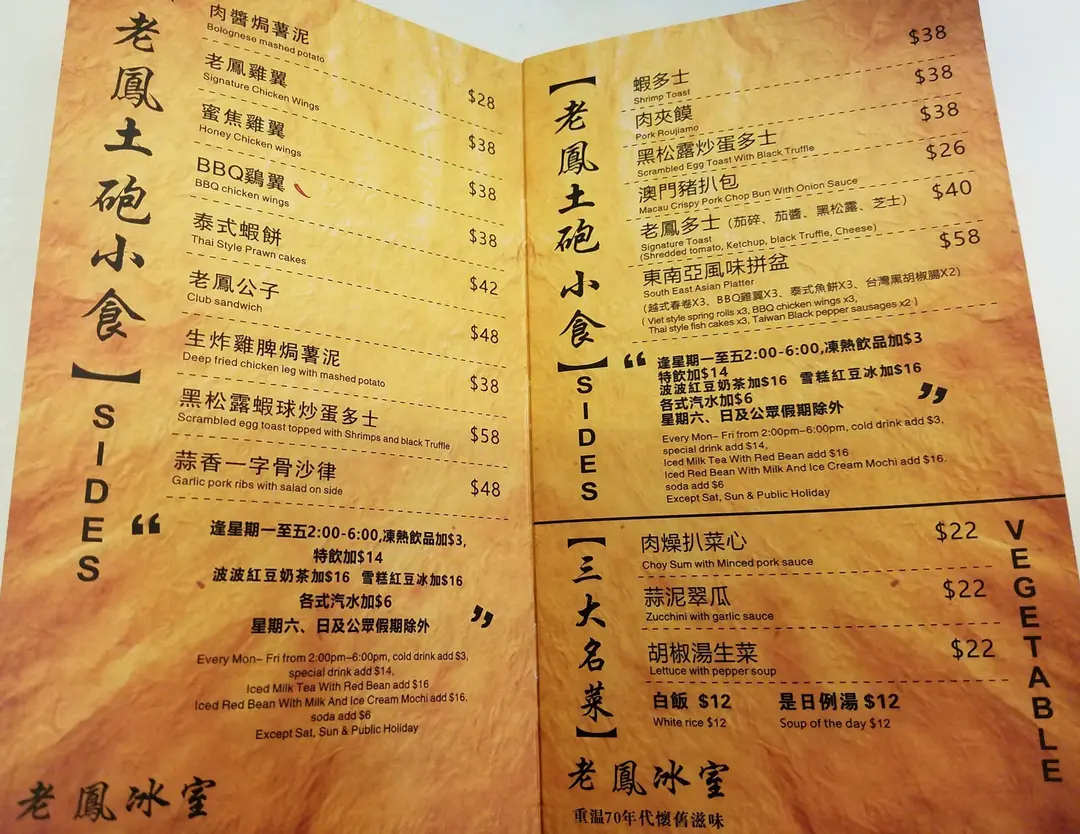 【老鳳土砲小食】SIDES
肉醬焗薯泥
Bolognese mashed potato
$28
老鳳雞翼
Signature Chicken Wings
$38
蜜焦雞翼
Honey Chicken wings
$38
BBQ鷄翼
BBQ chicken wings
$38
泰式蝦餅
Thai Style Prawn cakes
$42
老鳳公子
Club sandwich
$48
生炸雞脾焗薯泥
Deep fried chicken leg with mashed potato
$38
黑松露蝦球炒蛋多士
Scrambled egg toast topped with Shrimps and black Truffle
$58
蒜香一字骨沙律
Garlic pork ribs with salad on side
$48
“ 逢星期一至五2:00-6:00,凍熱飲品加$3,
特飲加$14
波波紅豆奶茶加$16 雪糕紅豆冰加$16
各式汽水加$6
星期六、日及公眾假期除外 ”
Every Mon– Fri from 2:00pm–6:00pm, cold drink add $3,
special drink add $14,
Iced Milk Tea With Red Bean add $16
Iced Red Bean With Milk And Ice Cream Mochi add $16.
soda add $6
Except Sat, Sun & Public Holiday
老鳳冰室
【老鳳土砲小食】SIDES
蝦多士 $38
Shrimp Toast
肉夾饃 $38
Pork Roujiamo
黑松露炒蛋多士 $38
Scrambled Egg Toast With Black Truffle
澳門豬扒包 $26
Macau Crispy Pork Chop Bun With Onion Sauce
老鳳多士 (茄碎、茄醬、黑松露、芝士) $40
Signature Toast
(Shredded tomato, Ketchup, black Truffle, Cheese)
東南亞風味拼盆 $58
South East Asian Platter
(越式春卷X3、BBQ雞翼X3、泰式魚餅X3、台灣黑胡椒腸X2)
( Viet style spring rolls x3, BBQ chicken wings x3,
Thai style fish cakes x3, Taiwan Black pepper sausages x2 )
“ 逢星期一至五2:00-6:00,凍熱飲品加$3
特飲加$14
波波紅豆奶茶加$16 雪糕紅豆冰加$16
各式汽水加$6
星期六、日及公眾假期除外 ”
Every Mon– Fri from 2:00pm–6:00pm, cold drink add $3,
special drink add $14,
Iced Milk Tea With Red Bean add $16
Iced Red Bean With Milk And Ice Cream Mochi add $16.
soda add $6
Except Sat, Sun & Public Holiday
【三大名菜】
VEGETABLE
肉燥扒菜心 $22
Choy Sum with Minced pork sauce
蒜泥翠瓜 $22
Zucchini with garlic sauce
胡椒湯生菜 $22
Lettuce with pepper soup
白飯 $12 是日例湯 $12
White rice $12 Soup of the day $12
老鳳冰室
重温70年代懷舊滋味